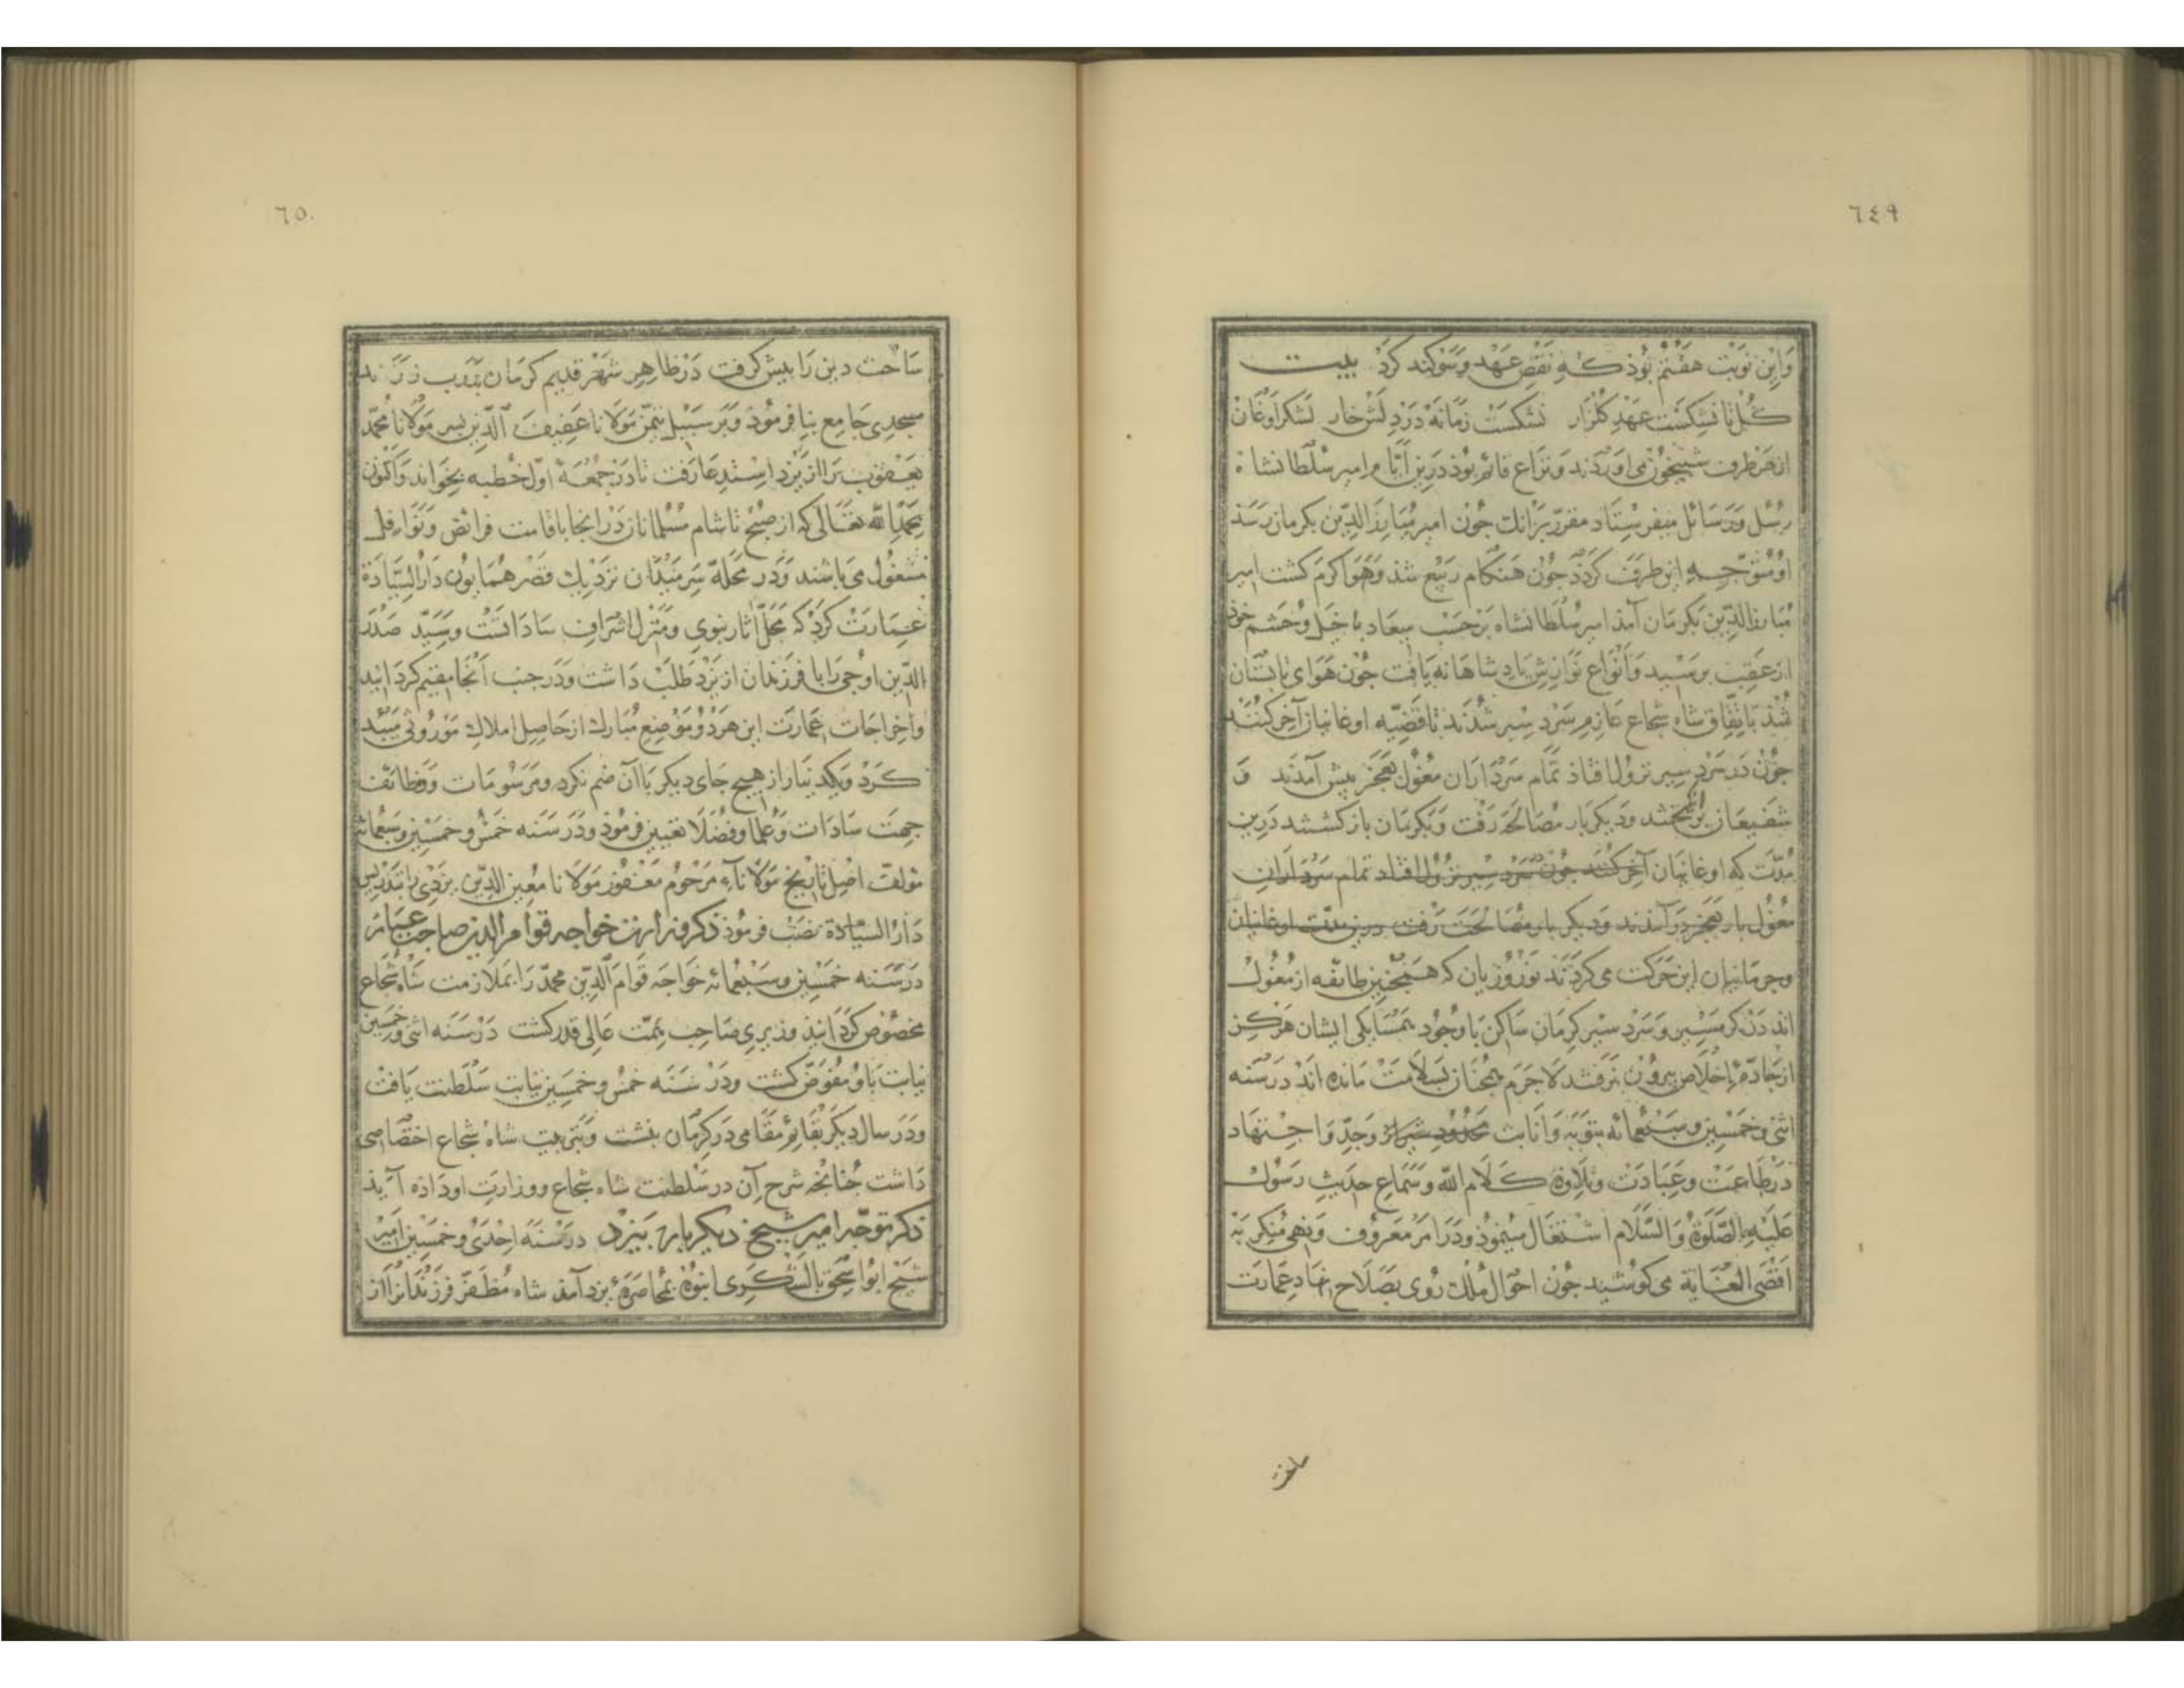 ٦٤٩
وَاین نوبَت هفتم بوُذ که نقضِ عهد وسَوکند کرَد بیت
کُل تا نشکسَت عهدِ کلزار نشکسَت زمانه دَردِلش خار لشکر اوغان
از هَر طرف شبیخوُن می اورَدند ونزاع قائم بوُذ دَرین ایّام امیر سُلطانشاه
رسُل ورَسَائل میفرستاد مقرّر برَانک جوُن امیر مُبارزالدّین بکرمان رسَذ
او متوَجّه این طرَف کردَد جوُن هنکام ربیع شذ وَهوَا کرم کشت امیر
مُبارزالدّین بکرمَان آمَذ امیر سُلطانشاه برَحسَب میعاد با خیل وحَشم خوذ
از عقب برسَید وَانواع نوازش پادشاهانه یافت جوُن هَوَای تابستان
شذ باتفاق شاه شجاع عازم سَرد سیر شدَند تا قضیّه اوغانیان آخر کنند
جوُن دَر سَرد سیر نزول افتاذ تمام سَردَاران مغوُل بعَجز بیش آمدَند وَ
شفیعَان برانکیختند ودیکربار مصَالحه رَفت وَبکرمَان بازکشتند دَرین
مدّت که اوغانیان آخر کنند جون سَرد سیر نزول افتاد تمام سَردَاران
مغوُل بار بعجز درَآمدند وَدیکربار مصَالحَت رَفت درین مدّت اوغانیان
وجرمانیان این حرَکت می کردَند نوَرُوزیان که همجنین طائفه از مغوُل
اند دَر کرمسَیر وسَرد سیر کرمَان ساکن با وجُود همسَایکی ایشان هرَکز
از جادّهٔ اخلاص بیروُن نرفتند لاجَرم همجنان بسَلامَت مَانده اند در سَنه
اثنی وخمسین وسَبعمائه بتوَبَه وَانابت وَجدّ وَاجتهاد
دَر طاعَت وعبَادَت وتلاوة کلام الله وسَماع حدیثِ رَسوُل
علَیه الصّلوةُ وَالسَّلام اشتغال مینموُذ ودَر امر معرَوُف وَنهی منکر بَه
اقصی الغایة می کوشید جوُن احوَال مُلک روُی بصَلاح نهاد عمارَت
ساحت
٦٥٠
سَاحت دین رَا بیش کرفت دَر ظاهِر شهر قدیم کرمَان بدَرب زرَند
مسجدی جامع بنا فرموُذ وَبر سَبیل تیمّن موَلانا عفیف الدّین بسر موَلانا محمّد
یعقوُب رَا از یزد استدعا رَفت تا دَر جُمعهٔ اوّل خطبه بخوَاند وَاکنون
بحمدالله تعالی که از صبح تا شام مسُلمانان دَر انجا باقامت فرائض ونوَافل
مشغول می باشند وَدر محَلّه سَر میدَان نزدیک قصر همایون دَارُالسّیادة
عمارَت کرَد که محلّ اثار نبوی ومنزل اشراف سَادات است وسَیّد صَدر
الدّین اوجی را با فرزندان از یزد طلب داشت ودَر جنب آنجا مقیم کردَانید
واخراجات عمارَت این هر دو موضع مبَارک از حَاصل املاک موروثی سیّد
کرَد ویک دینار از هیچ جای دیکر با آن ضم نکرد ومرسومات ووَظائف
جهت سادات وَعلما وفضلا تعیین فرموُذ ودَر سَنه خمس وخمسین وسبعمائه
مؤلف اصل تاریخ موَلانآء مرحوُم مغفور موَلانا معین الدّین یزدی را بتدریس
دَارُالسّیادة نصب فرموُذ ذکر وزارت خواجه قوام الدین صاحب عیار
دَر سَنه خمسین وسَبعمائه خوَاجه قوَام الدّین محمّد رَا بملازمت شاه شجاع
مخصوُص کردَانیذ وزیری صَاحب همّت عالی قدر کشت دَر سَنه اثنی وخمسین
نیابت باو مفوَّض کشت ودَر سَنه خمس وخمسین نیابت سَلطنت یافت
ودَر سال دیکر بقائم مقامی دَر کرمان بنشست وَبتربیت شاه شجاع اختصاصی
دَاشت جُنانجه شرح آن در سلطنت شاه شجاع ووزارت او داده آیذ
ذکر توجّه امیر شیخ دیکر بار بیزد درسَنهٔ احدی وخمسین امیر
شیخ ابو اسحق بالشکری انبوُه بمحاصَرهٔ یزد آمذ شاه مُظفّر فرزندانرا از